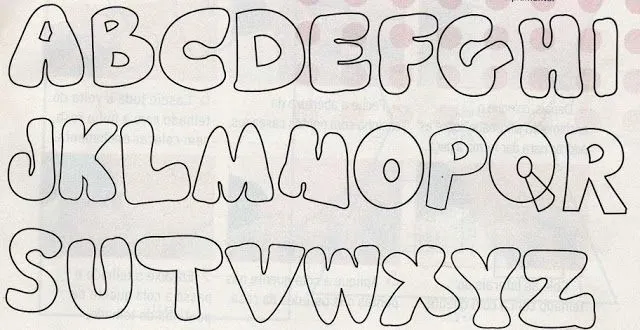 ABCDEFGHI
JKLMNOPQR
SUTVWXYZ